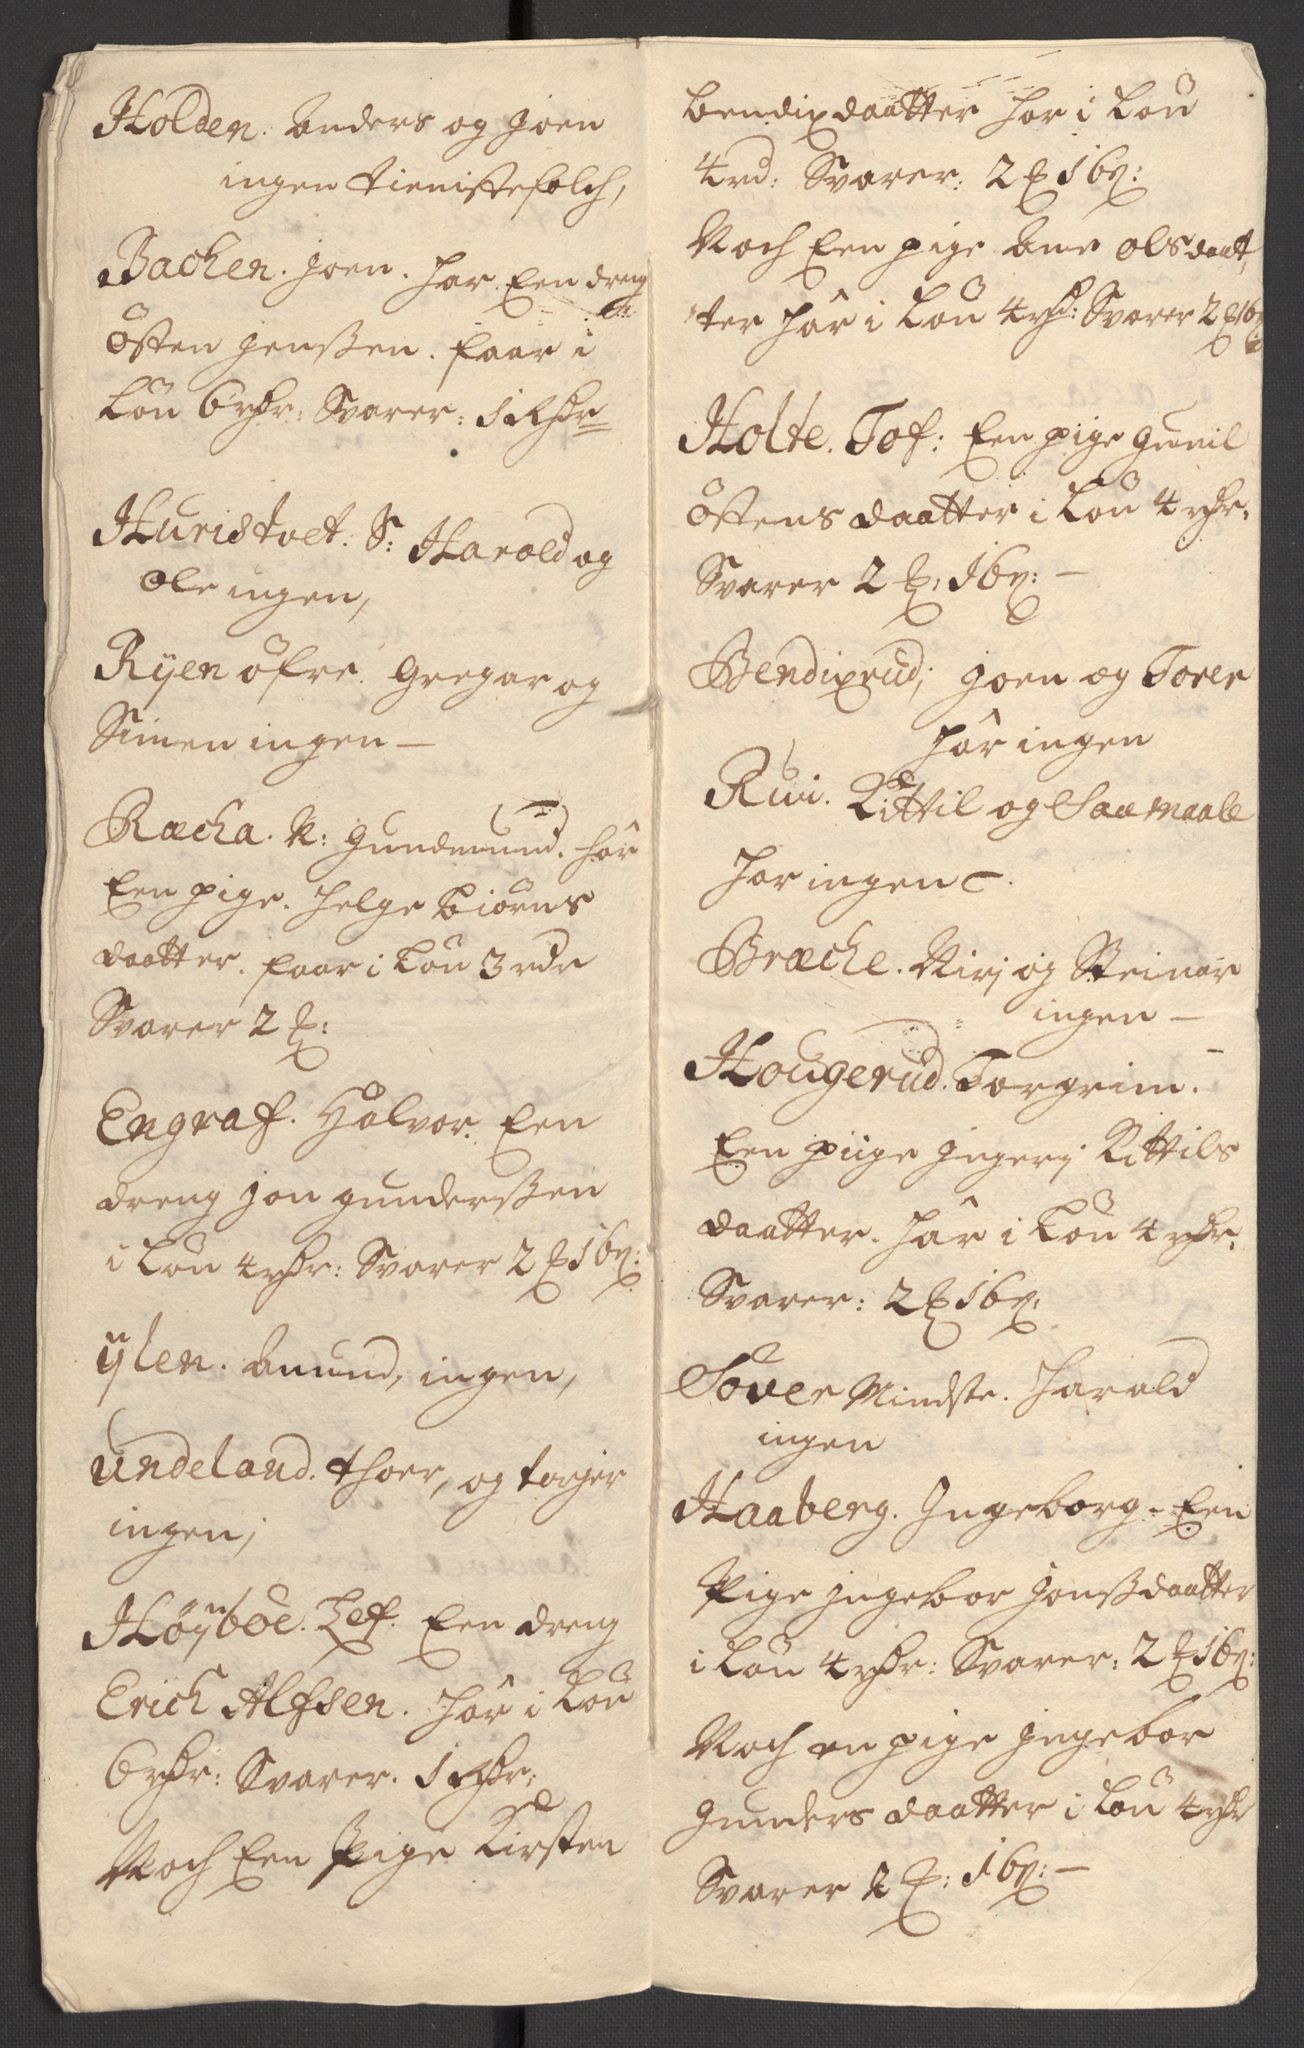 Holden. Anders og Joen
ingen tienistefolch,
Bachen. Joen. har Een dreng
Östen Jenßen. faar i
Lön 6 rdr: Svarer: 1 Rdr
Huristvet. S: Harold og
Ole ingen,
Ryen öfre. Gregar og
Simen ingen —
Ræcha. N: Gundmund. har
Een pige. Helge Biörns
daatter. faar i Lön 3 rdr
Svarer 2 ℔:
Engraf. Halvor. Een
dreng Jon gunderßen
i Lön 4 rdr: Svarer 2 ℔ 16 ẞ:
ÿlen. Amund, ingen,
Undeland. Thoer, og torger
ingen;
Höÿböe. Lef. Een dreng
Erich Alfsen. har i Lön
6 rdr: Svarer. 1 Rdr:
Noch Een Pige Kirsten
bendixdaatter har i Lön
4 rd: Svarer: 2 ℔ 16 ẞ:
Noch Een pige Ane Olsdaat,
ter har i Lön 4 rd: Svarer 2 ℔ 16 ẞ
Holte. Tof: Een pige gunil
Östens daatter i Lön 4 rdr.
Svarer 2 ℔: 16 ẞ: —
Bendixrud; Joen og Torer
har ingen
Rui. Kittil og Saamaale
har ingen —.
Bræche. Nirj og Steinar
ingen —
Hougerud. Torgrim.
Een piige Jngerj Kittils
daatter. har i Lön 4 rdr.
Svarer: 2 ℔ 16 ẞ:
Söver Mindste. Harald
ingen
Haaberg. Ingeborg. Een
Pige Jngebor Jonßdaatter
i Lön 4 rdr: Svarer: 2 ℔ 16 ẞ:
Noch en pige Jngebor
Gunders daatter i Lön 4 rdr
Svarer 2 ℔: 16 ẞ: —